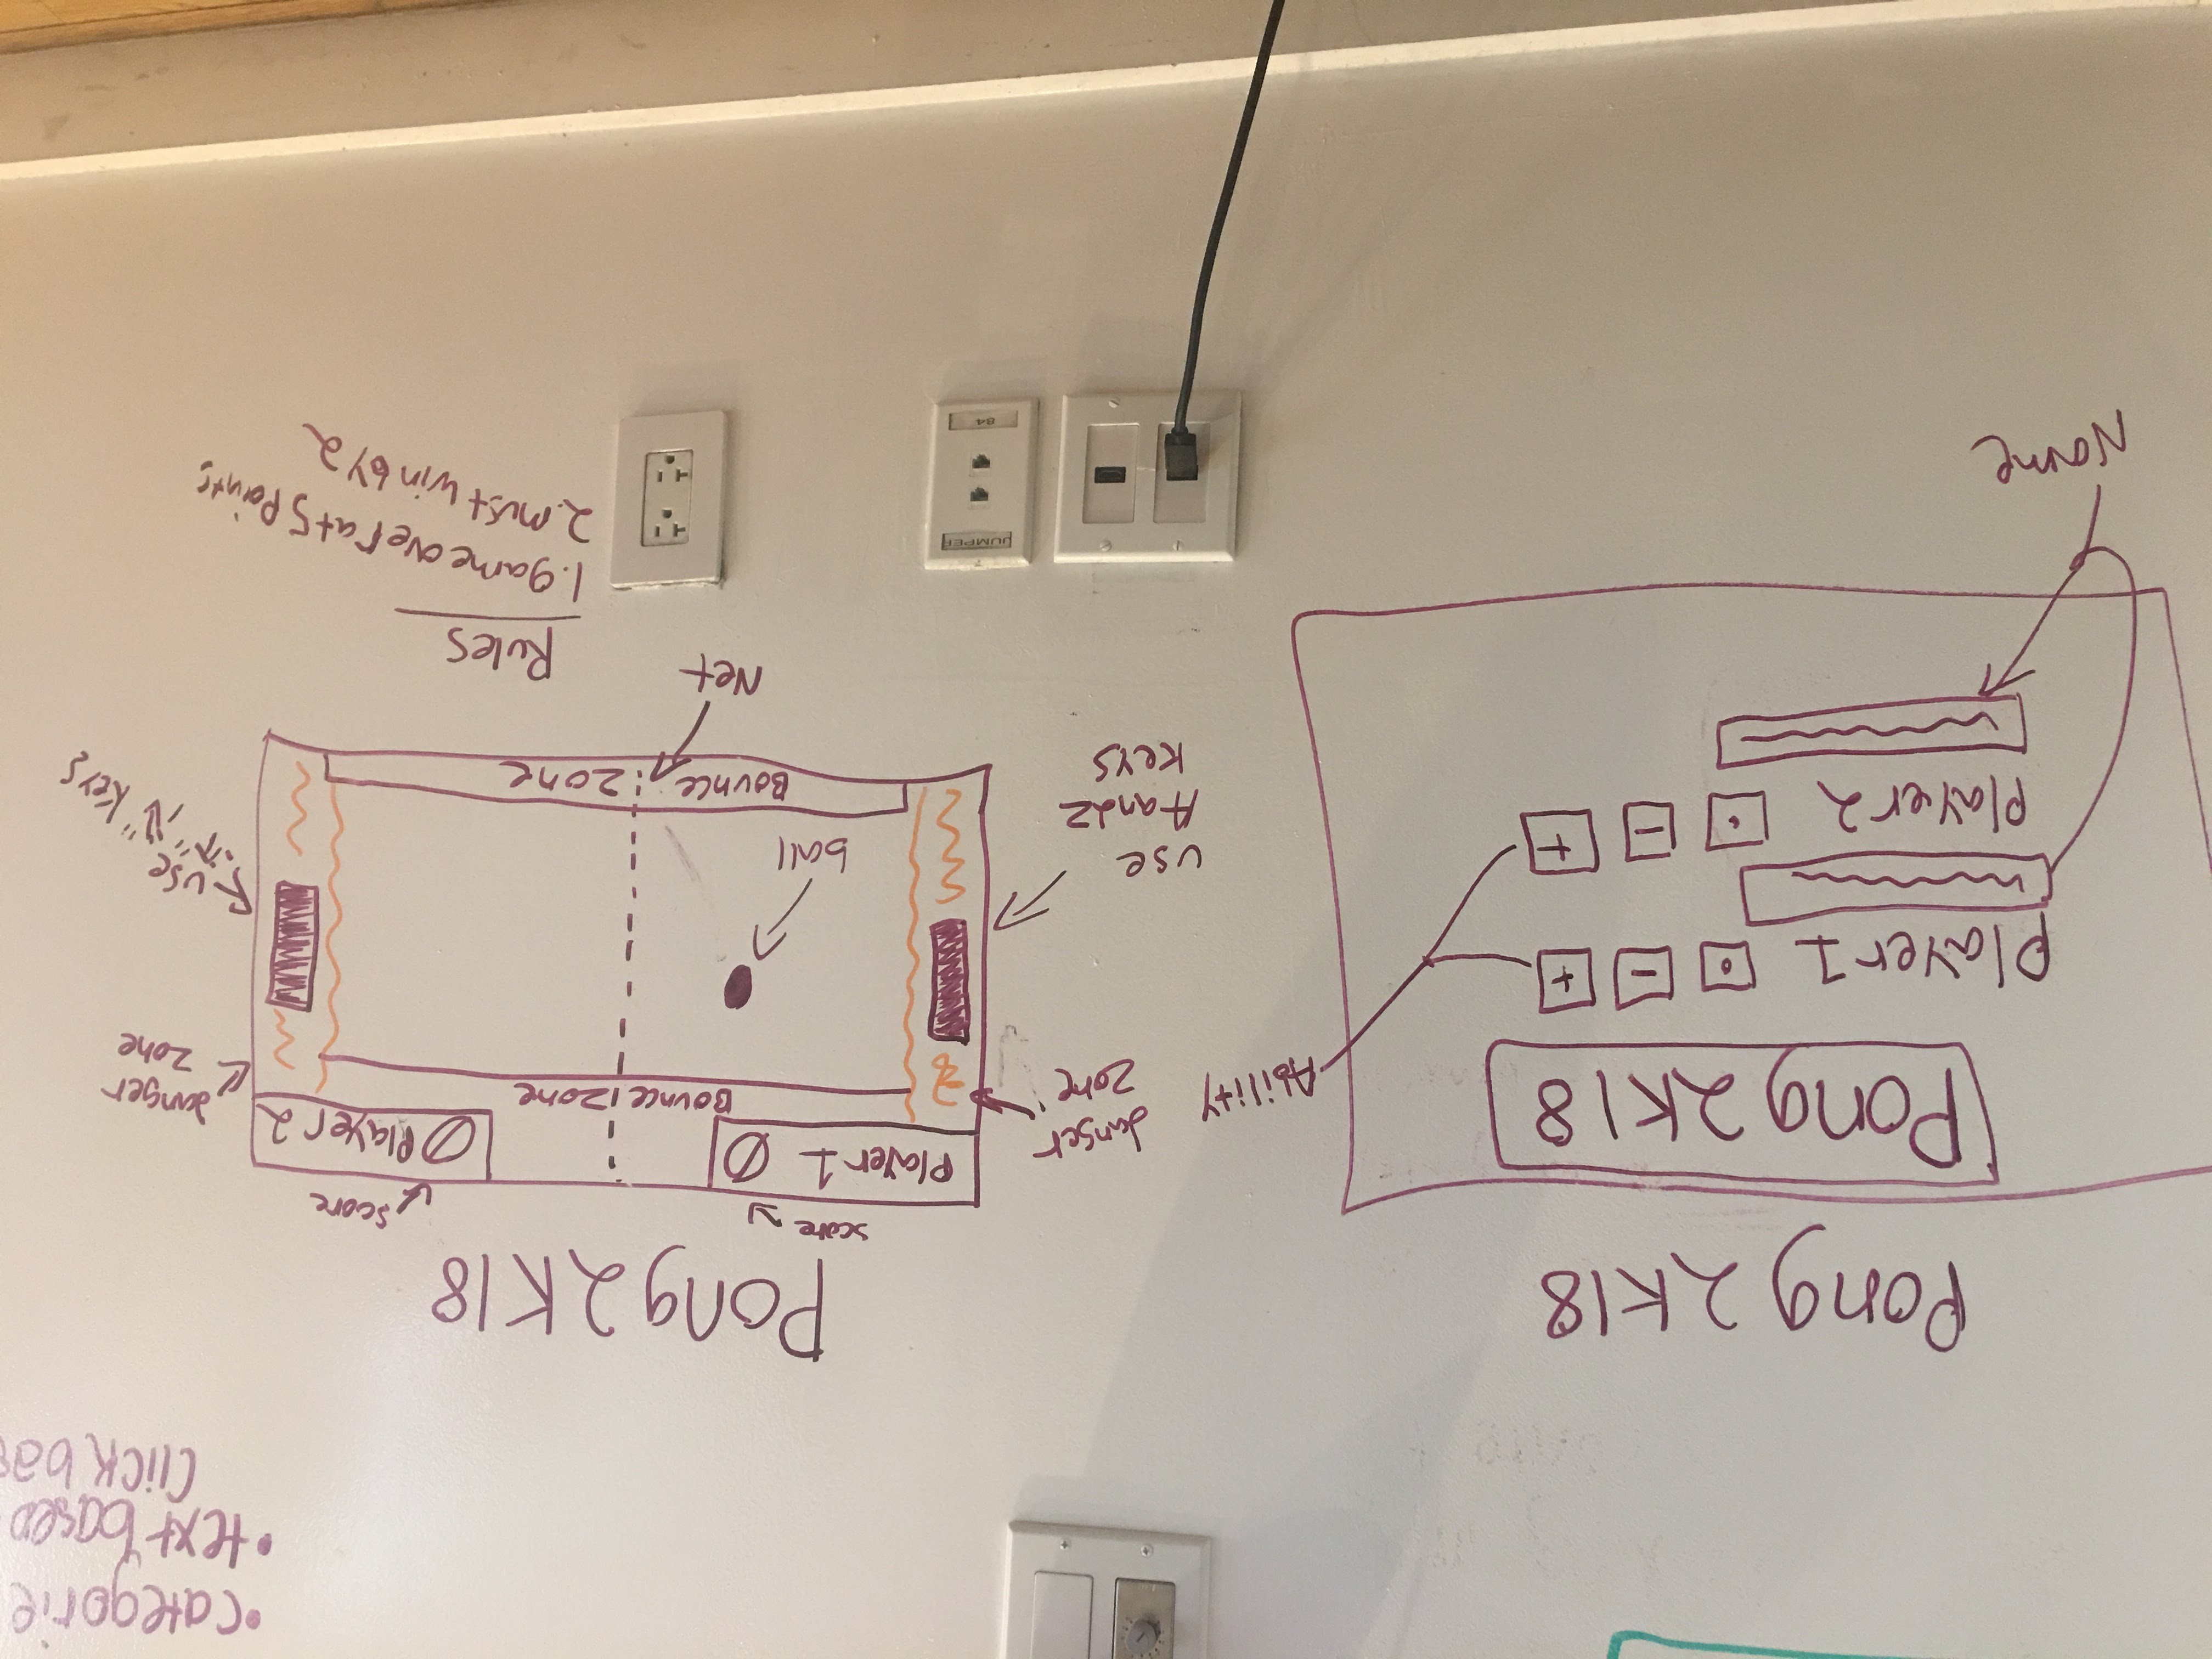 •categorie
•text based
Click bas
Pong 2K18
Pong 2K18
Player 1 • - +
Player 2 • - +
Ability
Name
Pong 2K18
score
score
Player 1 0
0 Player 2
danger
zone
danger
zone
Bounce Zone
ball
use
A and Z
keys
use
"↑" "↓" keys
Bounce Zone
Net
Rules
1. game over at 5 points
2. must win by 2
JUMPER
84